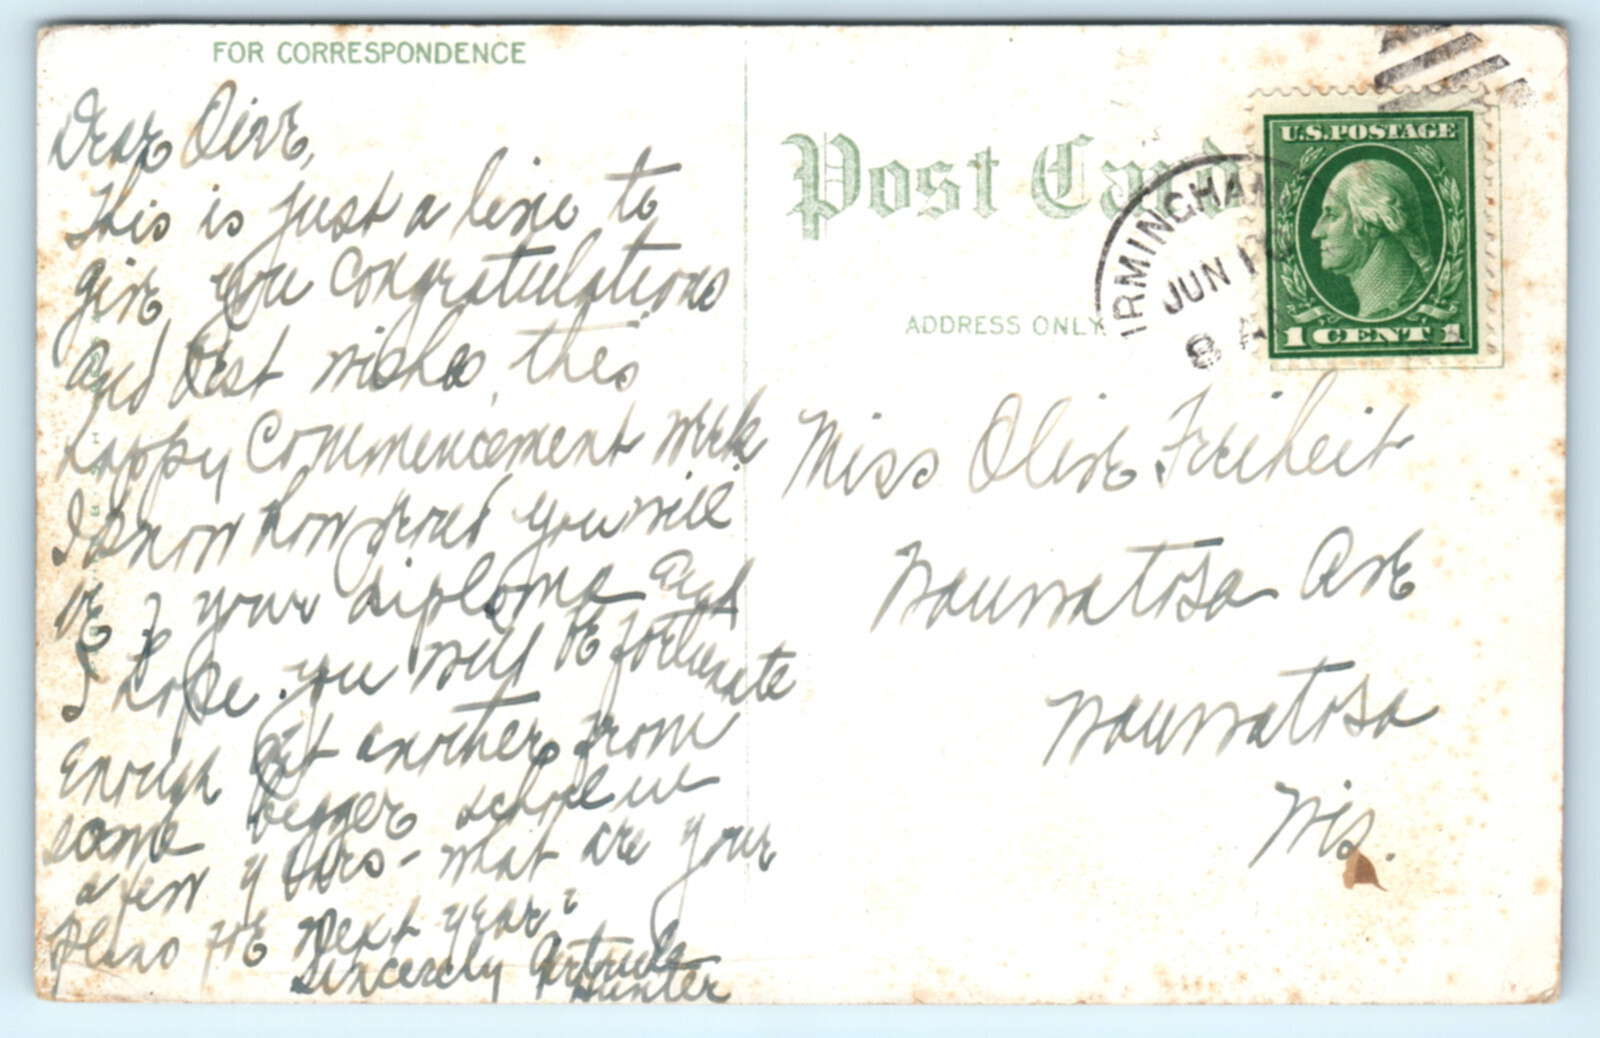 FOR CORRESPONDENCE
Dear Olive,
This is just a line to
give you congratulations
and best wishes, this
happy Commencement week
I know how proud you will
be of your diploma and
I hope you will be fortunate
enough get another from
some bigger school in
a few years - what are your
plans for next year?
Sincerely Gertrude
Hunter
Post Card
ADDRESS ONLY
IRMINGHAM
JUN 1
8 A
U.S. POSTAGE
1 CENT 1
Miss Olive Freiheit
Wauwatosa Ave
Wauwatosa
Wis.